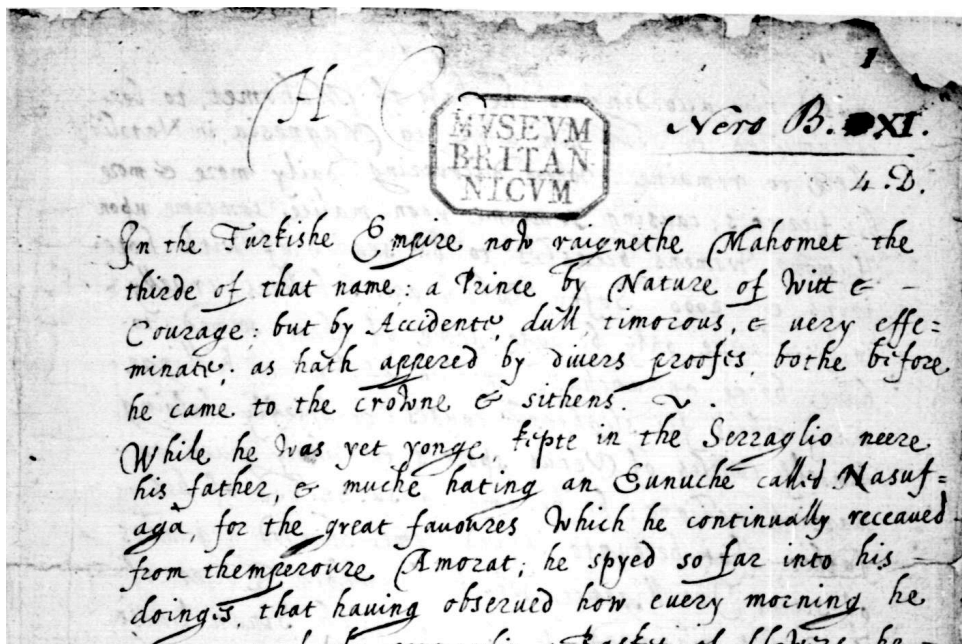 1
H
MVSEVM
BRITAN
NICVM
Nero B. XI.
4. D.
In the Turkishe Empire now raignethe Mahomet the
thirde of that name: a Prince by Nature of Witt &
Courage: but by Accidente, dull, timorous, & very effe=
minate: as hath appered by divers proofes, bothe before
he came to the crowne & sithens.
While he was yet yonge, kepte in the Serraglio neere
his father, & muche hating an Eunuche called Nasuf=
aga, for the great favoures which he continually receaued
from themperoure Amorat; he spyed so far into his
doings, that having observed how every morning he